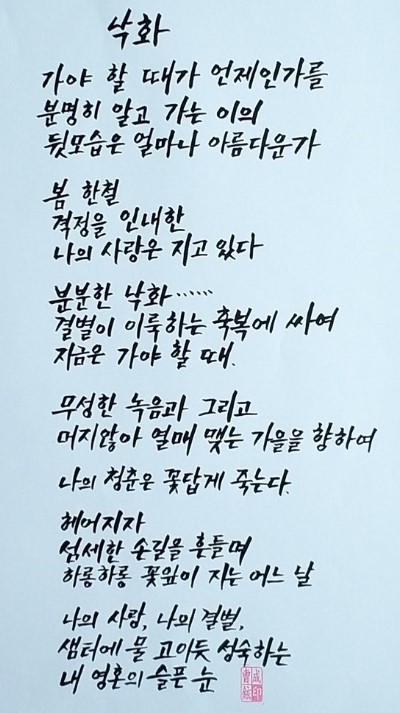 낙화
가야 할 때가 언제인가를
분명히 알고 가는 이의
뒷모습은 얼마나 아름다운가
봄 한철
격정을 인내한
나의 사랑은 지고 있다
분분한 낙화……
결별이 이룩하는 축복에 싸여
지금은 가야 할 때.
무성한 녹음과 그리고
머지않아 열매 맺는 가을을 향하여
나의 청춘은 꽃답게 죽는다.
헤어지자
섬세한 손길을 흔들며
하롱하롱 꽃잎이 지는 어느 날
나의 사랑, 나의 결별,
샘터에 물 고이듯 성숙하는
내 영혼의 슬픈 눈